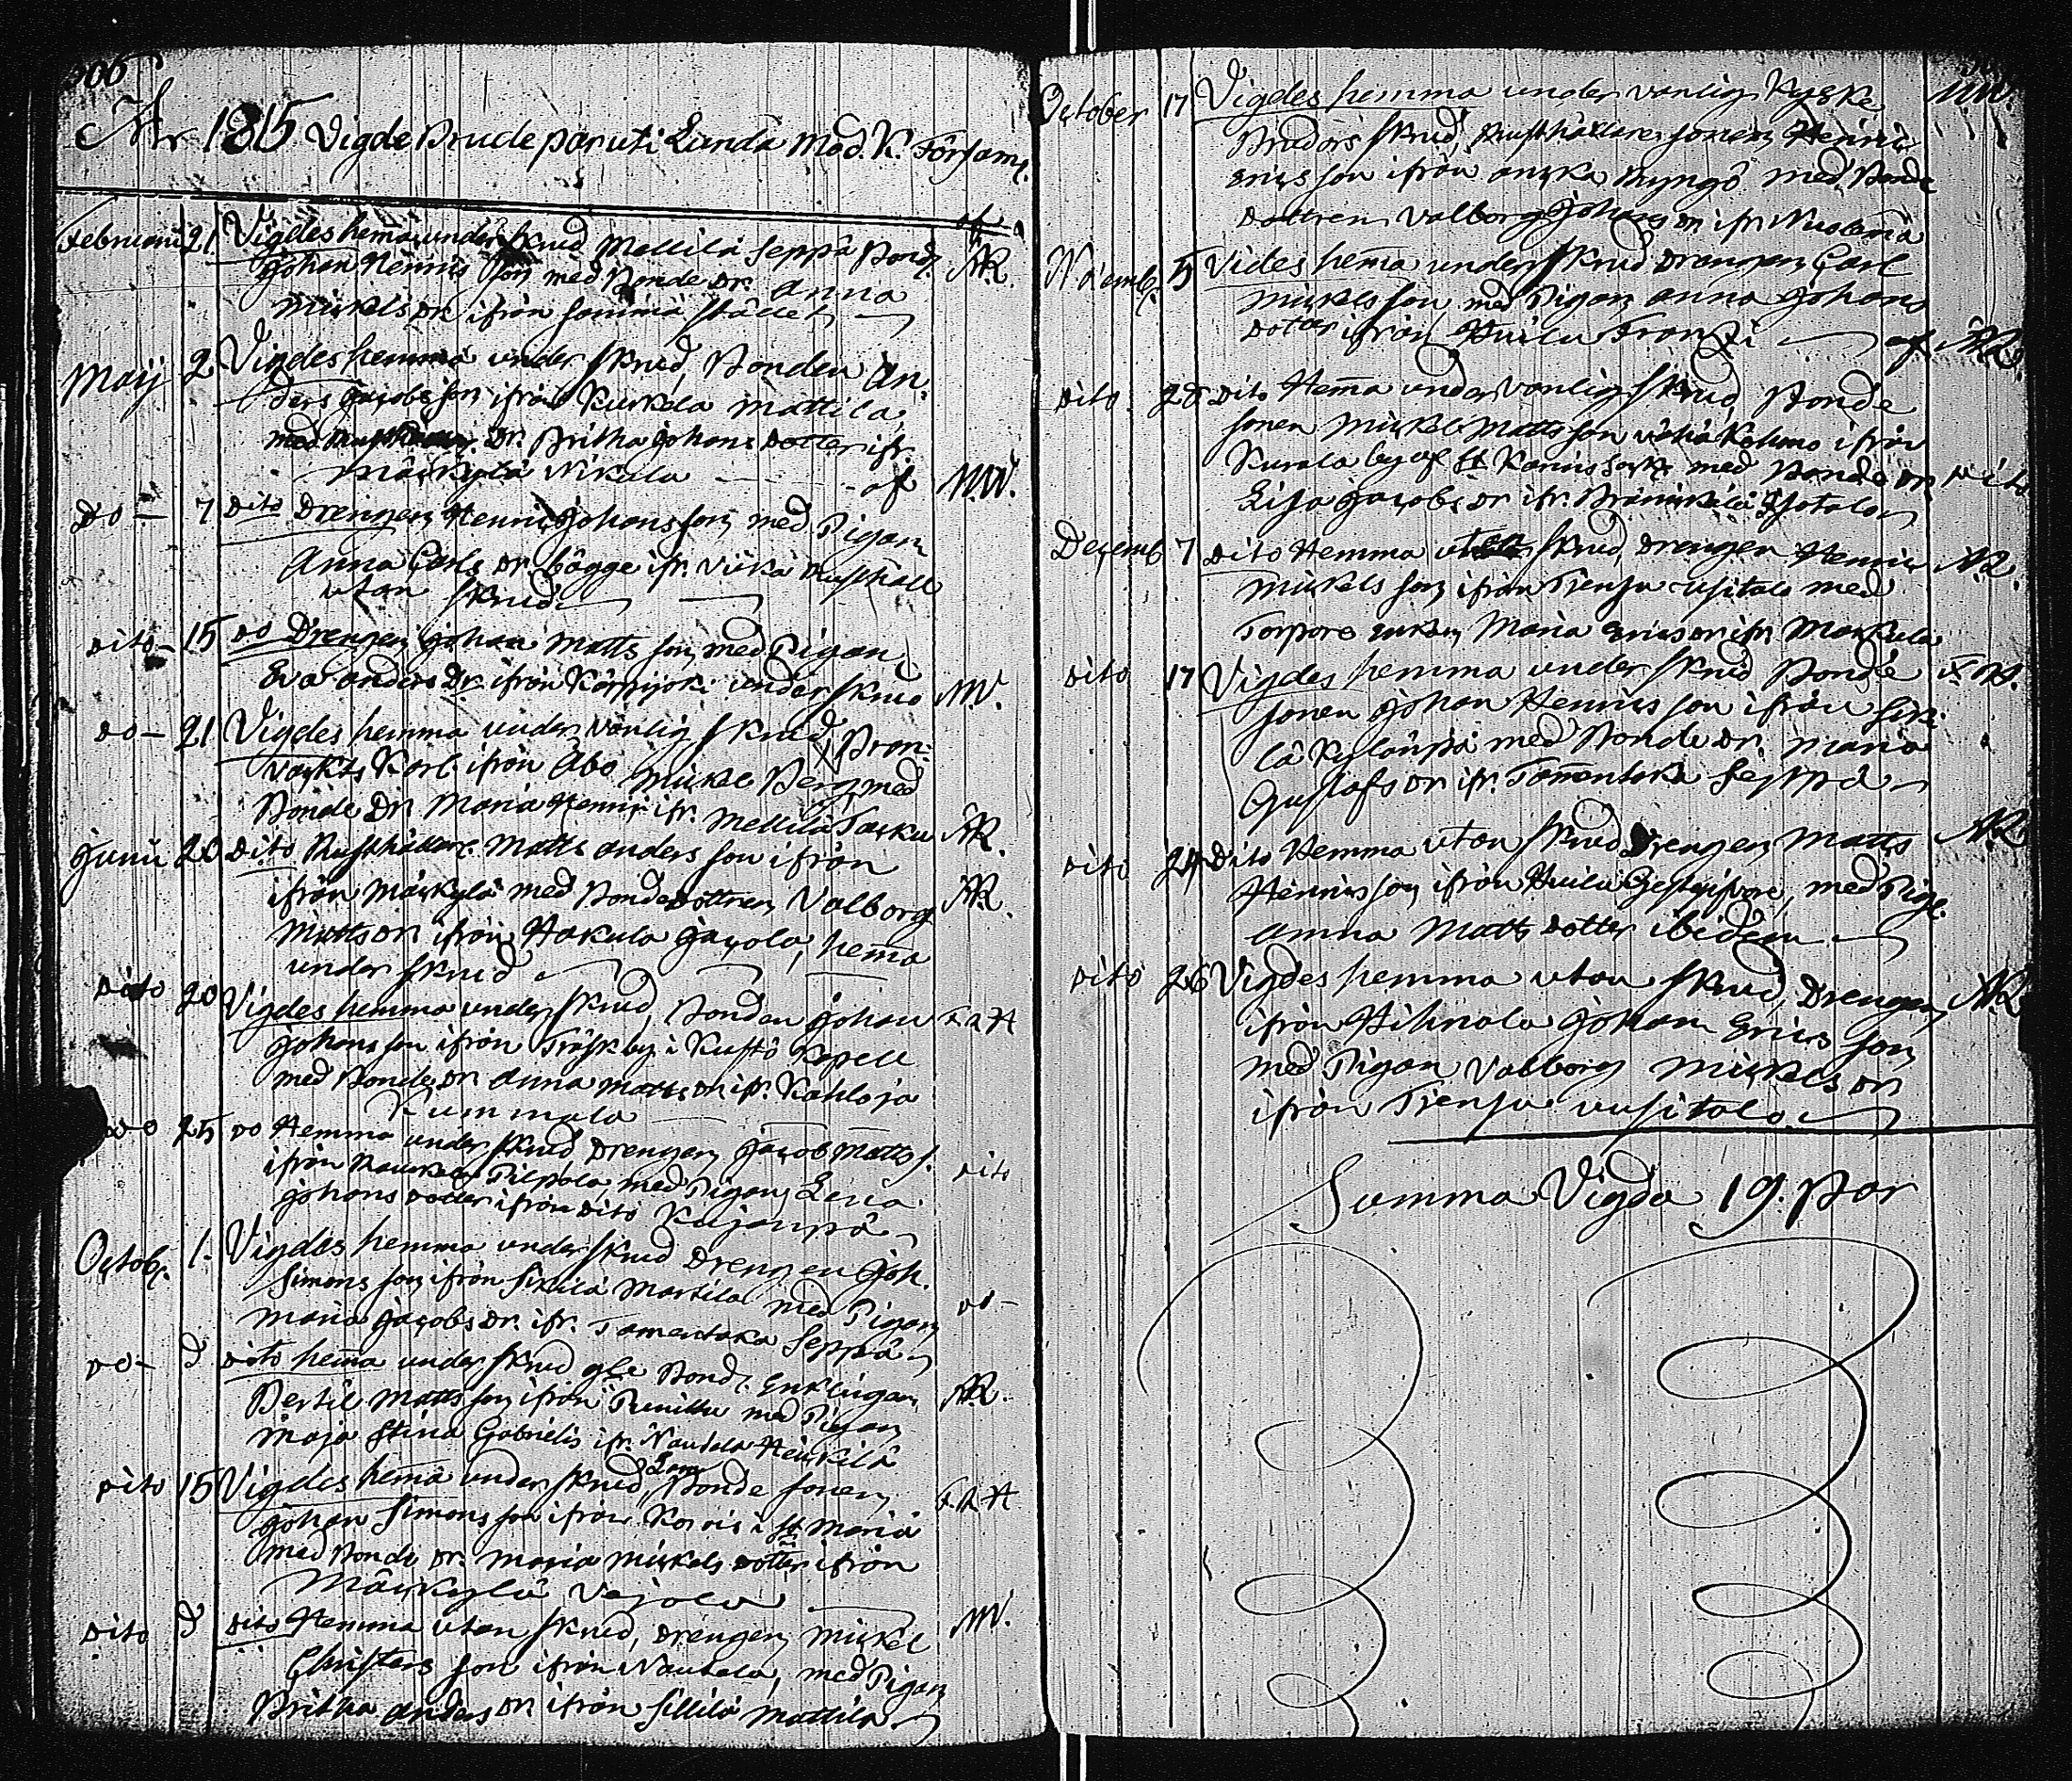 206
År 1815 Vigde Brude par uti Lundå Mod. K. Församl.
af
Februarii 21 Vigdes hema under skrud Mellilä Seppä Bond. AR.
Johan Henrics Son med Bonde Dr. Anna
Mickels Dr ifrån samma stället
Maij 2 Vigdes hemma under skrud, Bonden An-
ders Jacobs son ifrån Kuskela Mattila,
med Dr. Britha Johans dotter ifr.
Mäckylä Nikula af MW.
Do 7 Dito Drengen Henric Johansson med Pigan
Anna Carls Dr Bågge ifr. Viika Rusthåll
utan skrud
dito 15 Do Drengen Johan Matts son med Pigan
Eva Anders Dr. ifrån Kärpijoki under skrud MW.
Do 21 Vigdes hemma under vanlig skrud Bron-
vackts Karl ifrån Åbo Mickel Berg med
Bonde Dr. Maria Henrics ifr. Mellilä Tasku AR.
Junii 20 dito Rusthållare Matts Anders son ifrån
ifrån Mäckylä med Bonde dottren Valborg AR.
Matts Dr ifrån Hakula Jacola, hema
under skrud
dito 20 Vigdes hemma under skrud, Bonden Johan
Johans son ifrån Träskby i Kustö Kapell
med Bonde Dr Anna Matts Dr ifr. Kahloja
Kummala
do 25 Do Hemma under skrud Drengen Jacob Matts s. dito
ifrån Pilpola med Pigan Lena
Johans dotter ifrån dito Kujanpä
Octob. 1. Vigdes hemma under skrud Drengen Joh.
Simons son ifrån Sikilä Martila med Pigan do
Maria Jacobs Dr. ifr. Tamentaka Seppä
do d dito hema under skrud Bond. Enklingen
Bertil Matts son ifrån Punittu med Pigan AR.
Maja Stina Gabriels ifr. Nautela Heickilä
dito 15 Vigdes hema under skrud Bonde sonen
Johan Simons son ifrån Korois i St. Maria
med Bonde Dr. Maria Mickels dotter ifrån
Mäckylä Vejola
dito d dito Hemma utan skrud, Drengen Mickel MW.
Christers son ifrån Nautela, med Pigan
Britha Anders Dr ifrån Sillilä Mattila
October 17 Vigdes hemma under vanlig Kyske MW.
Brudors skrud, Rusthållare sonen Henric
Erics son ifrån Anska Ryngö med Bonde
dottren Valborg Johans Dr ifr.
Novemb. 5 Vides hema under skrud Drengen Carl
Mickels son med Pigan Anna Johans
dotter ifrån Huilu Frantzi af AR.
dito 28 dito Hema under vanlig skrud Bonde
sonen Mickel Matts son Vähä Kohmo ifrån
Kurala by af St Karins Sockn med Bonde Dr dito
Lisa Jacobs Dr ifr. Bränikkälä Ajotalo
Decemb 7 dito Hemma utan skrud, Drengen Henric AR.
Mickels son ifrån Prensu Usitalo med
Torpare enkan Maria Erics Dr ifr. Mackula
dito 17 Vigdes hemma under skrud Bonde
sonen Johan Henrics son ifrån Siki-
lä Kylänpä med Bonde Dr. Maria
Gustafs Dr ifr. Tamentaka Seppä
dito 24 dito Hemma utan skrud Drengen Matts AR
Henrics son ifrån Huilu Gestgifvare, med Pig.
Anna Matts dotter ibidem
dito 26 Vigdes hemma utan skrud, Drengen AR
ifrån Hihnala Johan Erics son
med Pigan Valborg Mickels Dr
ifrån Prensu uusitalo
Summa Vigda 19. Par